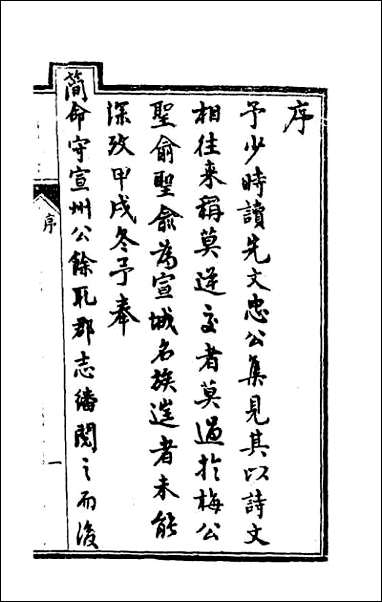 序
予少時讀先文忠公集見其以詩文
相往来稱莫逆交者莫過於梅公
聖俞聖俞為宣城名族逆者未能
深攷甲戌冬予奉
簡命守宣州公餘取郡志繙閱之而後
序
一